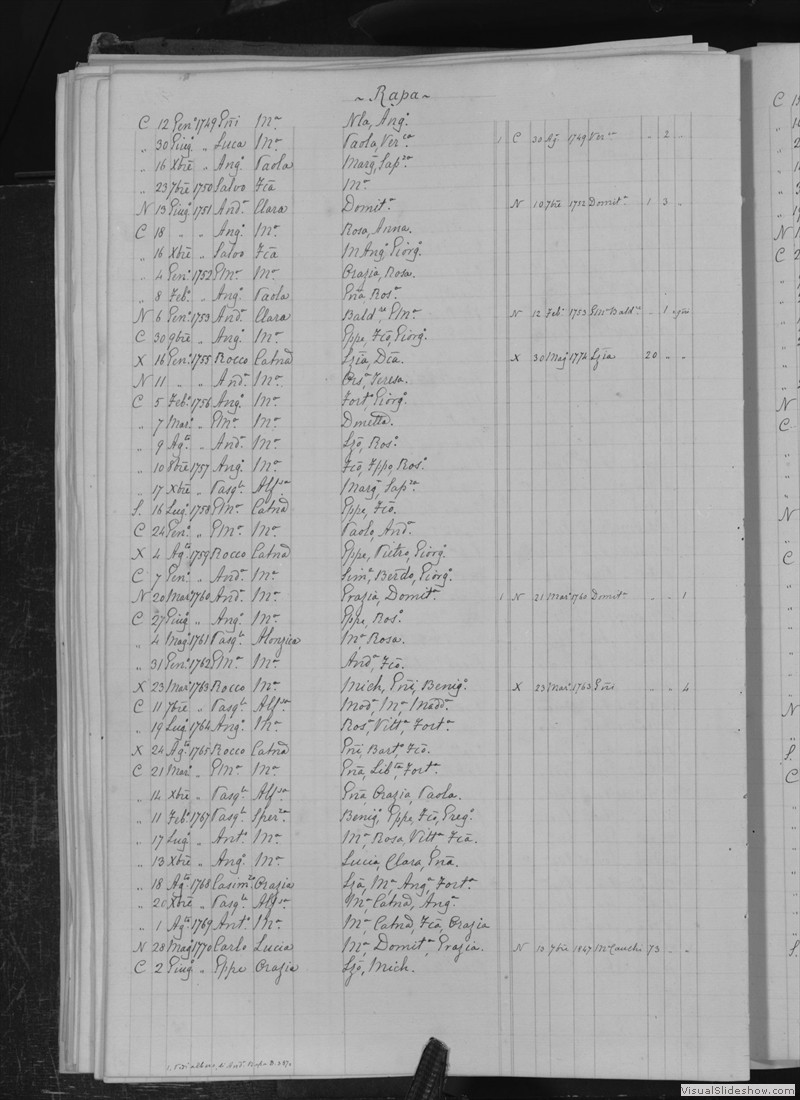 ~ Rapa ~
C 12 Gen.° 1749 Gñi M.ª Nla, Ang.ª
„ 30 Giug.° „ Luca M.ª Paola, Ver.ca 1 C 30 Ag. 1749 Ver.ca „ 2 „
„ 16 Xbre „ Ang.° Paola Marg.ª, Sap.za
„ 23 7bre 1750 Salvo Fca M.ª
N 13 Giug.° 1751 And.ª Clara Domit.ª N 10 7bre 1752 Domit.ª 1 3 „
C 18 „ „ Ang.° M.ª Rosa, Anna.
„ 16 Xbre „ Salvo Fca M Ang.ª, Giorg.ª
„ 4 Gen.° 1752 Gm.ª M.ª Orazia, Rosa.
„ 8 Feb.° „ Ang.° Paola Gña, Ros.ª
N 6 Gen.° 1753 And.ª Clara Bald.re, Gm.ª N 12 Feb.° 1753 Gm.ª Bald.re „ 1
C 30 9bre „ Ang.° M.ª Gppe, Fco, Giorg.°
X 16 Gen.° 1755 Rocco Catna Lzia, Dca. X 30 Mag. 1774 Lzia 20 „ „
N 11 „ „ And.ª M.ª Ors.ª, Teresa.
C 5 Feb.° 1756 Ang.° M.ª Fort.ª, Giorg.ª
„ 7 Mar.° „ Gm.ª M.ª Dmetta.
„ 9 Ag.to „ And.ª M.ª Lzo, Ros.°
„ 10 8bre 1757 Ang.° M.ª Fco, Fppo, Ros.°
„ 17 Xbre „ Pasq.le Alf.sa Marg.ª, Sap.za
S. 16 Lug.° 1758 Gm.ª Catna Gppe, Fco.
C 24 Gen.° „ Gm.ª M.ª Paolo, And.ª
X 4 Ag.to 1759 Rocco Catna Gppe, Pietro, Giorg.°
C 7 Gen.° „ And.ª M.ª Sim.e, Berdo, Giorg.°
N 20 Mar.° 1760 And.ª M.ª Grazia, Domit.ª 1 N 21 Mar.° 1760 Domit.ª „ „ 1
C 27 Giug.° „ Ang.° M.ª Gppe, Ros.°
„ 4 Mag.° 1761 Pasq.le Alonzica M.ª Rosa.
„ 31 Gen.° 1762 Gm.ª M.ª And.ª, Fco.
X 23 Mar.° 1763 Rocco M.ª Mich, Gñi, Benig.° X 23 Mar.° 1763 Gñi „ „ 4
C 11 7bre „ Pasq.le Alf.sa Mod.ª, M.ª Madd.ª
„ 19 Lug.° 1764 Ang.° M.ª Ros.ª, Vitt.ª, Fort.ª
X 24 Ag.to 1765 Rocco Catna Gñi, Bart.°, Fco.
C 21 Mar.° „ Gm.ª M.ª Gña, Lib.ta, Fort.ª
„ 14 Xbre „ Pasq.le Alf.sa Gña Orazia, Paola.
„ 11 Feb.° 1767 Pasq.le Sper.za Benig.°, Gppe, Fco, Greg.°
„ 17 Lug.° „ Ant.° M.ª M.ª Rosa, Vitt.ª, Fca.
„ 13 Xbre „ Ang.° M.ª Lucia, Clara, Gña.
„ 18 Ag.to 1768 Casim.ro Orazia Lza, M.ª Ang.ª, Fort.ª
„ 20 Xbre „ Pasq.le Alf.sa M.ª Catna, Ang.ª
„ 1 Ag.to 1769 Ant.° M.ª M.ª Catna, Fca, Orazia
N 28 Mag. 1770 Carlo Lucia M.ª Domit.ª, Grazia. N 10 7bre 1847 73 „ „
C 2 Giug.° „ Gppe Orazia Lzo, Mich.
VisualSlideshow.com